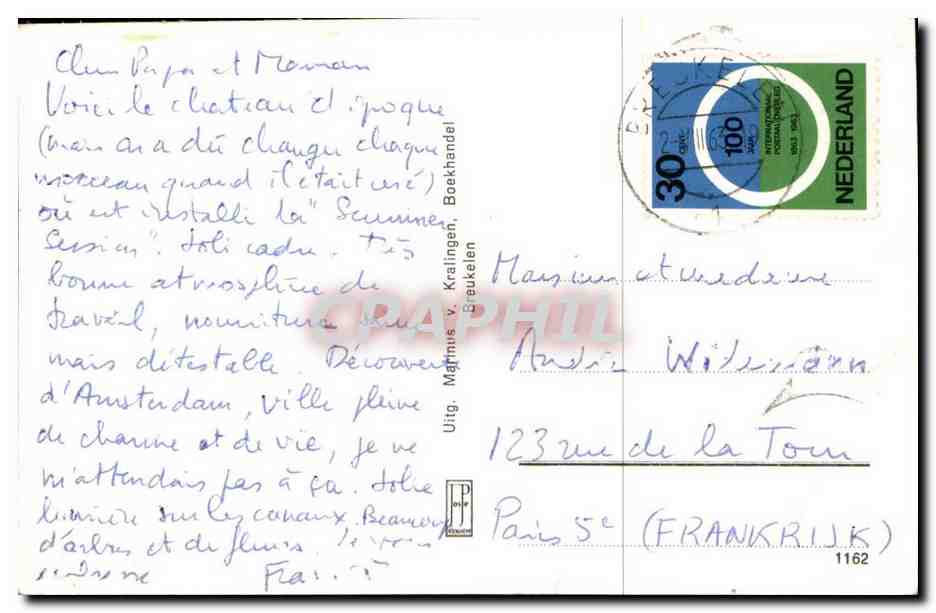 Chers Papa et Maman
Voici le chateau d'époque
(mais on a dû changer chaque
morceau quand il était usé)
où est installé la "Summer
Session". Joli cadre. Très
bonne atmosphère de
travail, nourriture saine
mais détestable. Découvert
d'Amsterdam, ville pleine
de charme et de vie, je ne
m'attendais pas à ça. Jolie
lumière sur les canaux. Beaucoup
d'arbres et de fleurs. Je vous
embrasse
Uitg. Marinus v. Kralingen, Boekhandel
Breukelen
JosP
1162
BREUKELEN
30 CENT
100 JAAR
INTERNATIONAAL
POSTAAL OVERLEG
1863 1963
NEDERLAND
Monsieur et madame
André
123 rue de la Tour
Paris 5e (FRANKRIJK)
CPAPHIL